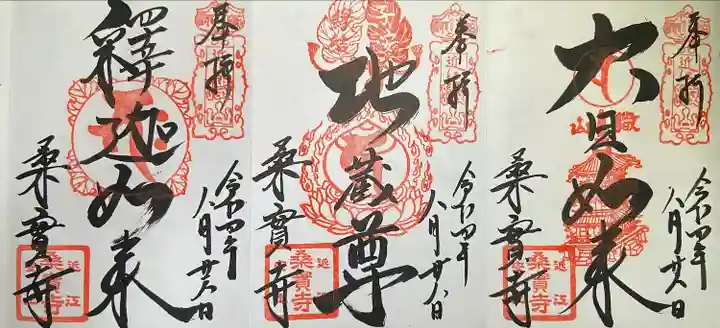 奉拝
大日如来
桑實寺
令和四年
八月廿六日
近江
桑實寺
奉拝
地蔵尊
桑實寺
令和四年
八月廿六日
近江
桑實寺
奉拝
釋迦如来
桑實寺
令和四年
八月廿六日
近江
桑實寺